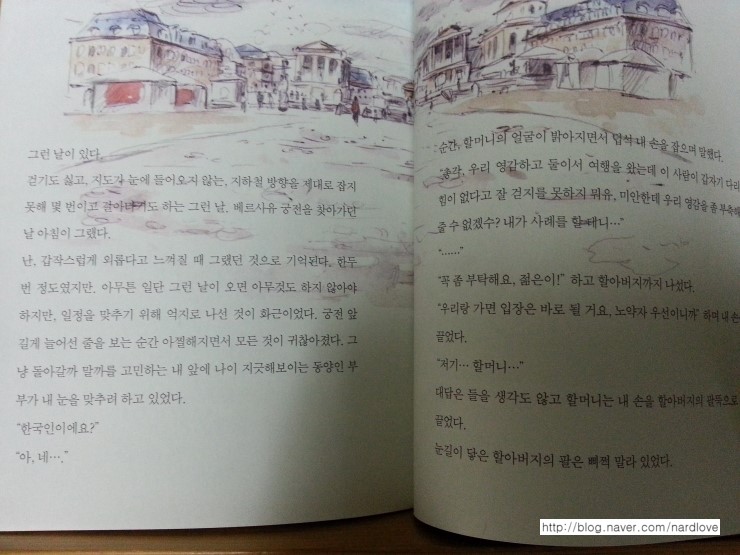 그런 날이 있다.
걷기도 싫고, 지도가 눈에 들어오지 않는, 지하철 방향을 제대로 잡지
못해 몇 번이고 갈아타기도 하는 그런 날, 베르사유 궁전을 찾아가던
날 아침이 그랬다.
난, 갑작스럽게 외롭다고 느껴질 때 그랬던 것으로 기억된다. 한두
번 정도였지만, 아무튼 일단 그런 날이 오면 아무것도 하지 않아야
하지만, 일정을 맞추기 위해 억지로 나선 것이 화근이었다. 궁전 앞
길게 늘어선 줄을 보는 순간 아찔해지면서 모든 것이 귀찮아졌다. 그
냥 돌아갈까 말까를 고민하는 내 앞에 나이 지긋해보이는 동양인 부
부가 내 눈을 맞추려 하고 있었다.
“한국인이에요?”
“아, 네….”
순간, 할머니의 얼굴이 밝아지면서 덥석 내 손을 잡으며 말했다.
우리 영감하고 둘이서 여행을 왔는데 이 사람이 갑자기 다리
힘이 없다고 잘 걷지를 못하지 뭐유, 미안한데 우리 영감을 좀 부축해
줄 수 없겠수? 내가 사례를 할 테니…”
“……”
“꼭 좀 부탁해요, 젊은이!” 하고 할아버지까지 나섰다.
“우리랑 가면 입장은 바로 될 거요, 노약자 우선이니까” 하며 내 손
끌었다.
“저기… 할머니…”
대답은 들을 생각도 않고 할머니는 내 손을 할아버지의 팔뚝으로
끌었다.
눈길이 닿은 할아버지의 팔은 삐쩍 말라 있었다.
http://blog.naver.com/nardlove